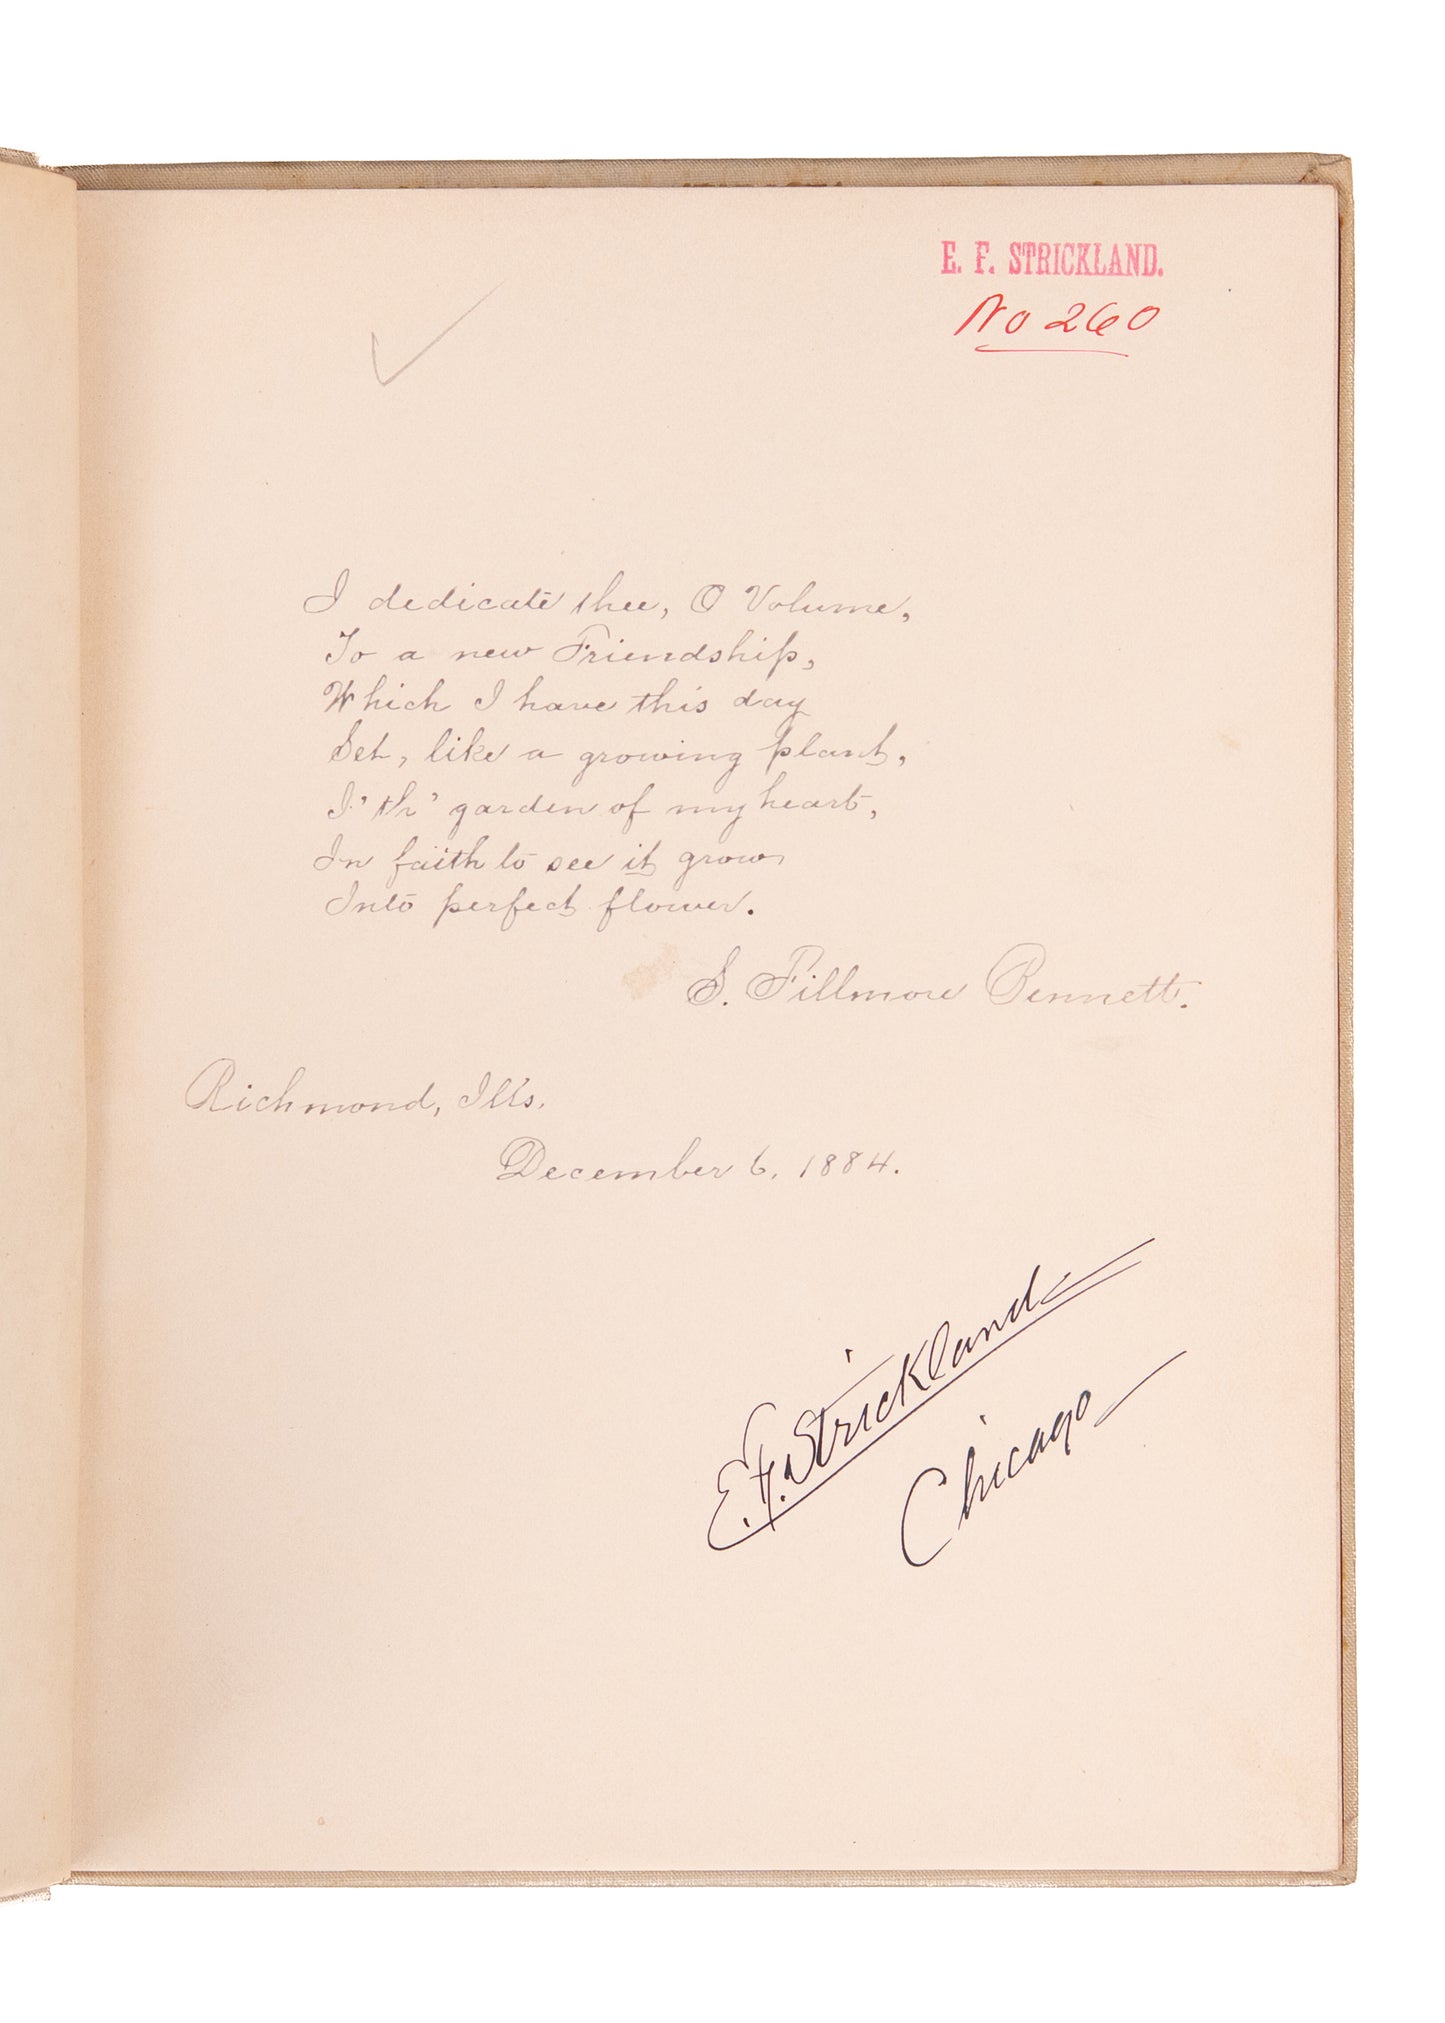 E. F. STRICKLAND.
No 260
I dedicate thee, O Volume,
To a new Friendship,
Which I have this day
Set, like a growing plant,
I' th' garden of my heart,
In faith to see it grow
Into perfect flower.
S. Fillmore Bennett.
Richmond, Ills.
December 6, 1884.
E. F. Strickland
Chicago